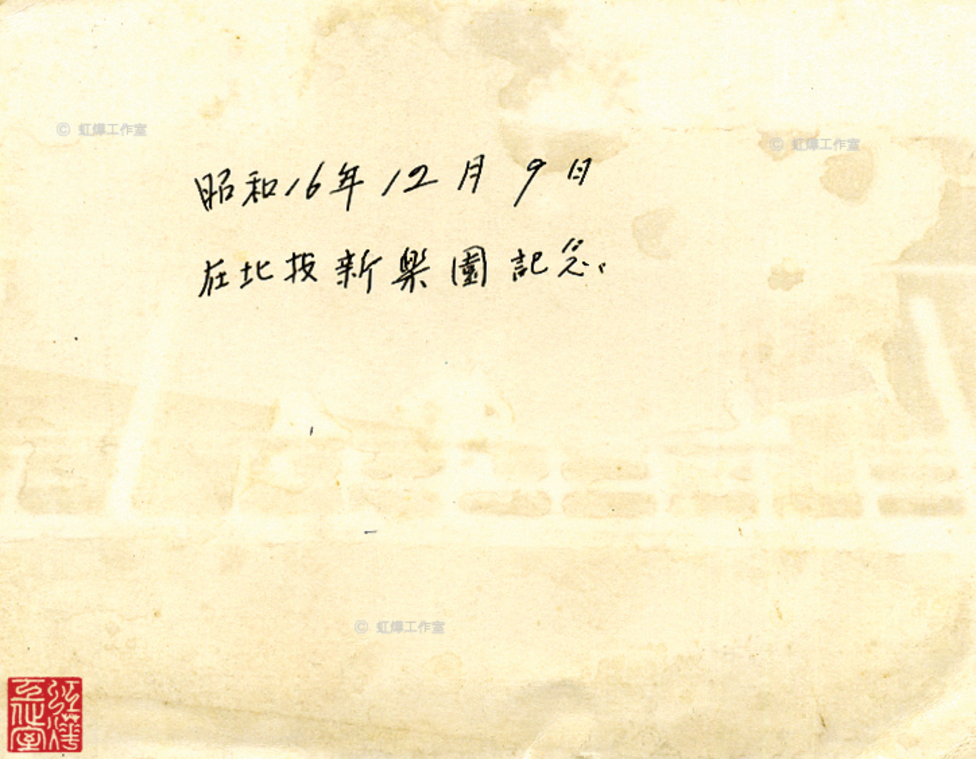 © 虹燁工作室
© 虹燁工作室
昭和16年12月9日
在北投新樂園記念。
© 虹燁工作室
虹燁工作室